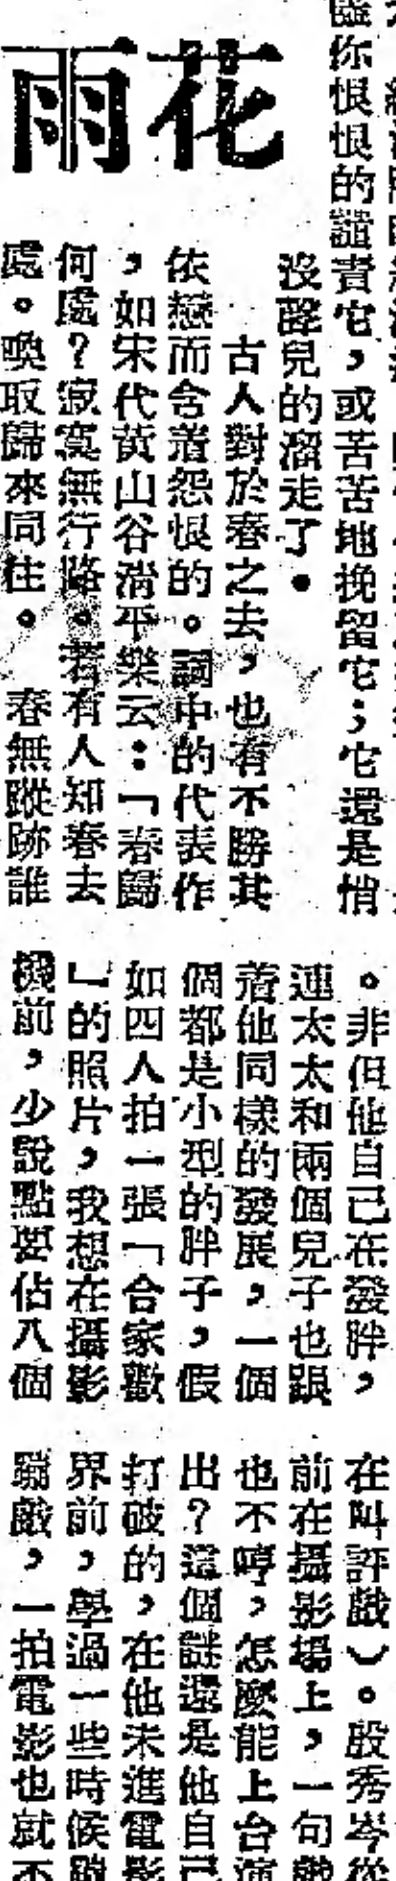 雨花
你恨恨的譴責它，或苦苦地挽留它；它還是悄
沒聲兒的溜走了。
古人對於春之去，也有不勝其
依戀而含着怨恨的。詞中的代表作
，如宋代黃山谷淸平樂云：「春歸
何處？寂寞無行路。若有人知春去
處。喚取歸來同住。　春無蹤跡誰
。非但他自己在發胖，
連太太和兩個兒子也跟
着他同樣的發展，一個
個都是小型的胖子，假
如四人拍一張「合家歡
」的照片，我想在攝影
機前，少說點要佔八個
在叫評戲）。殷秀岑從
前在攝影場上，一句戲
也不哼，怎麼能上台演
出？這個謎還是他自己
打破的，在他未進電影
界前，學過一些時候
戲，一拍電影也就不